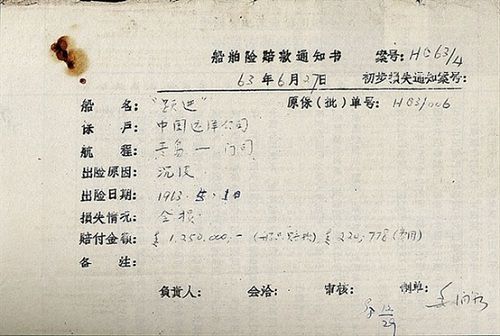 船舶险赔款通知书 案号：HC63/4
63年6月27日 初步损失通知案号：
船名："跃进" 原保（批）单号：HC3/006
保户：中国远洋公司
航程：青岛—门司
出险原因：沉没
出险日期：1963.5.1日
损失情况：全损
赔付金额：£1.250.000,-（船只赔款）£220,778（费用）
备注：
负责人： 会洽： 审核： 制班：
12/29